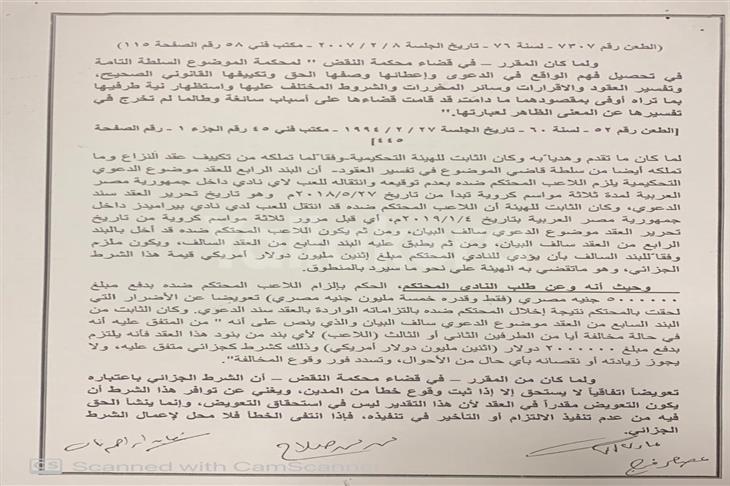 (الطعن رقم ٧٣٠٧ – لسنة ٧٦ – تاريخ الجلسة ٨ / ٢ / ٢٠٠٧ – مكتب فني ٥٨ رقم الصفحة ١١٥)
ولما كان المقرر – في قضاء محكمة النقض " لمحكمة الموضوع السلطة التامة
في تحصيل فهم الواقع في الدعوى وإعطائها وصفها الحق وتكييفها القانوني الصحيح،
وتفسير العقود والاقرارات وسائر المحررات والشروط المختلف عليها واستظهار نية طرفيها
بما تراه أوفى بمقصودهما ما دامت قد قامت قضاءها على أسباب سائغة وطالما لم تخرج في
تفسيرها عن المعنى الظاهر لعبارتها."
[الطعن رقم ٥٢ – لسنة ٦٠ – تاريخ الجلسة ٢٧ / ٢ / ١٩٩٤ – مكتب فني ٤٥ رقم الجزء ١ – رقم الصفحة
٤٤٥]
لما كان ما تقدم وهدياً به وكان الثابت للهيئة التحكيمية وفقاً لما تملكه من تكييف عقد النزاع وما
تملكه أيضا من سلطة قاضي الموضوع في تفسير العقود- أن البند الرابع للعقد موضوع الدعوي
التحكيمية يلزم اللاعب المحتكم ضده بعدم توقيعه وانتقاله للعب لاي نادي داخل جمهورية مصر
العربية لمدة ثلاثة مواسم كروية تبدأ من تاريخ ٢٠١٨/٥/٢٧م. وهو تاريخ تحرير العقد سند
الدعوي، وكان الثابت للهيئة أن اللاعب المحتكم ضده قد انتقل للعب لدي نادي بيراميدز داخل
جمهورية مصر العربية بتاريخ ٢٠١٩/١/٤م، أي قبل مرور ثلاثة مواسم كروية من تاريخ
تحرير العقد موضوع الدعوي سالف البيان، ومن ثم يكون اللاعب المحتكم ضده قد أخل بالبند
الرابع من العقد سالف البيان، ومن ثم يطبق عليه البند السابع من العقد السالف، ويكون ملزم
وفقاً للبند السالف بأن يؤدي للنادي المحتكم مبلغ إثنين مليون دولار أمريكي قيمة هذا الشرط
الجزائي، وهو ماتقضي به الهيئة علي نحو ما سيرد بالمنطوق.
وحيث أنه وعن طلب النادي المحتكم، الحكم بإلزام اللاعب المحتكم ضده بدفع مبلغ
٥٠٠٠٠٠٠ جنيه مصري (فقط وقدره خمسة مليون جنيه مصري) تعويضا عن الأضرار التي
لحقت بالمحتكم نتيجة إخلال المحتكم ضده بالتزاماته الواردة بالعقد سند الدعوي. وكان الثابت من
البند السابع من العقد موضوع الدعوي سالف البيان والذي ينص على أنه " من المتفق عليه أنه
في حالة مخالفة أيا من الطرفين الثاني أو الثالث (اللاعب) لأي بند من بنود هذا العقد فأنه يلتزم
بدفع مبلغ ٢٠٠٠٠٠٠ دولار (اثنين مليون دولار أمريكي) وذلك كشرط كجزائي متفق عليه، ولا
يجوز زيادته أو نقصانه بأي حال من الأحوال، وتسدد فور وقوع المخالفة".
ولما كان من المقرر – في قضاء محكمة النقض – أن الشرط الجزائي باعتباره
تعويضاً اتفاقياً لا يستحق إلا إذا ثبت وقوع خطأ من المدين، ويغني عن توافر هذا الشرط أن
يكون التعويض مقدراً في العقد لأن هذا التقدير ليس في استحقاق التعويض، وإنما ينشأ الحق
فيه من عدم تنفيذ الالتزام أو التأخير في تنفيذه، فإذا انتفى الخطأ فلا محل لإعمال الشرط
الجزائي.
CS Scanned with CamScanner